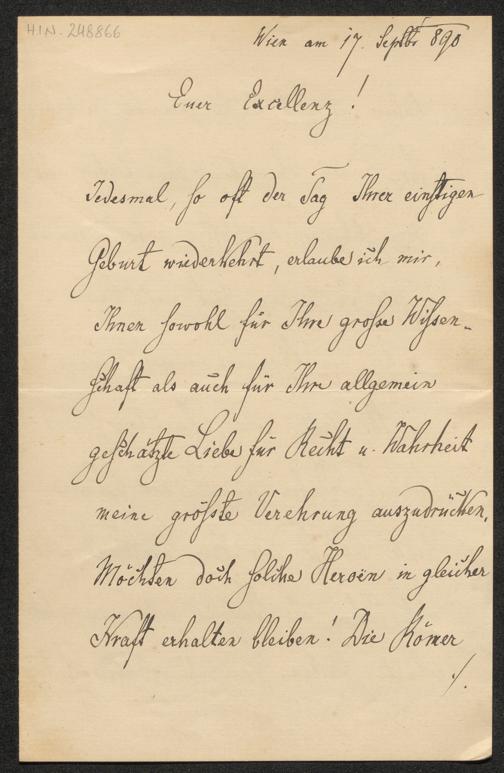 H.I.N.-248866
Wien am 17. Septbr 890
Euer Excellenz!
Jedesmal, so oft der Tag Ihrer einstigen
Geburt wiederkehrt, erlaube ich mir,
Ihnen sowohl für Ihre grosse Wissen-
schaft als auch für Ihre allgemein
geschätzte Liebe für Recht u. Wahrheit
meine grösste Verehrung auszudrücken.
Möchten doch solche Heroën in gleicher
Kraft erhalten bleiben! Die Römer
./.